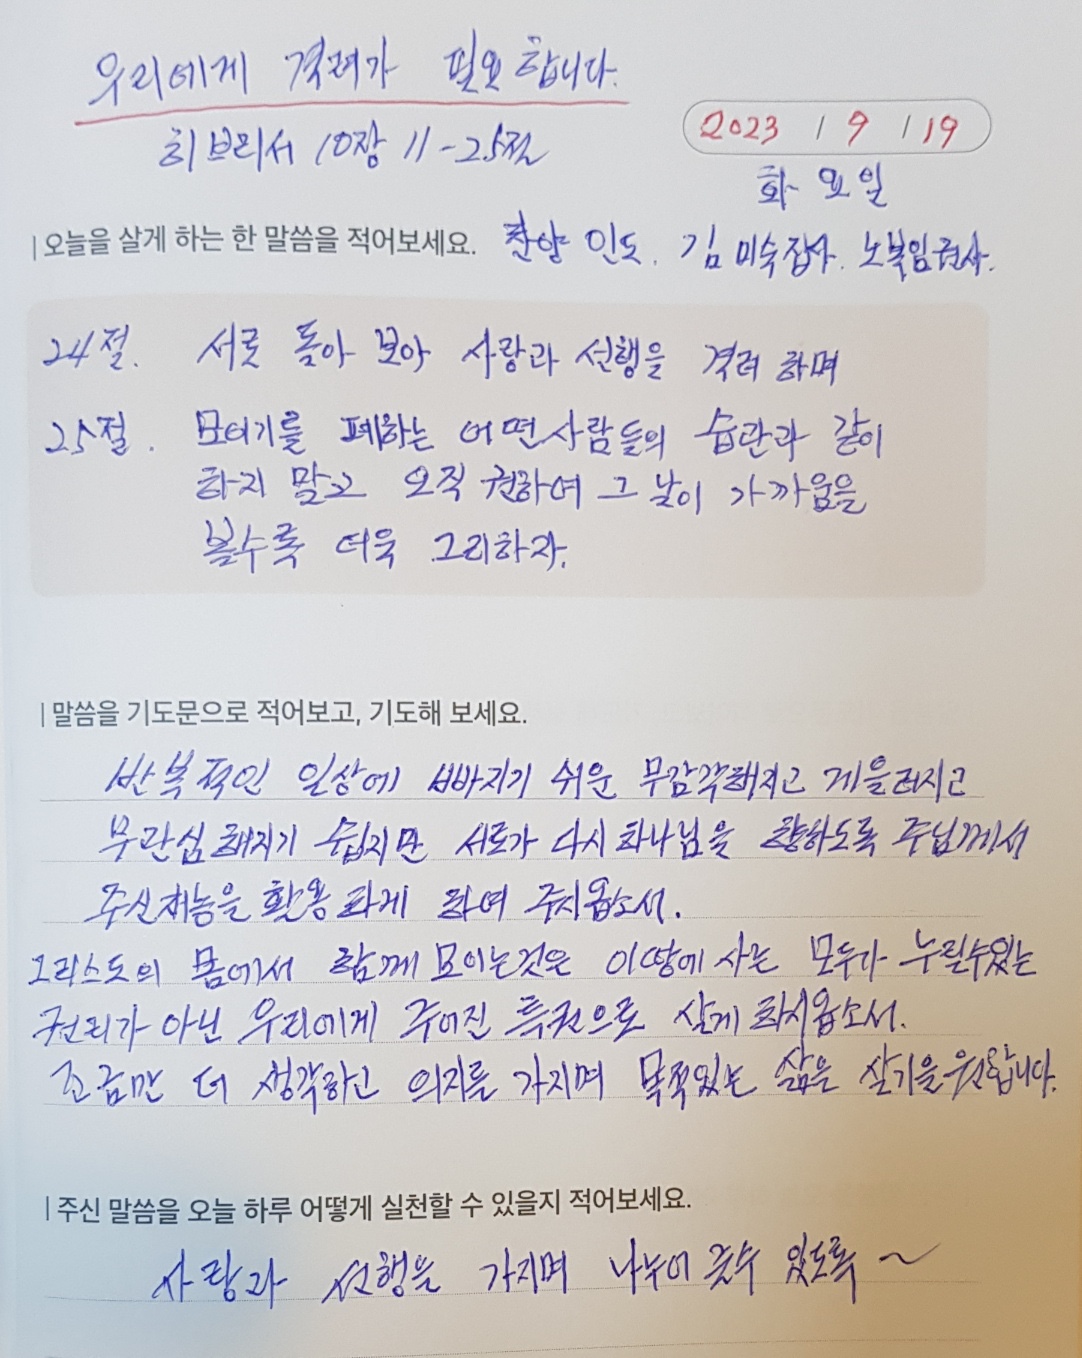 우리에게 격려가 필요합니다.
히브리서 10장 11-25절
2023 / 9 / 19
화요일
오늘을 살게 하는 한 말씀을 적어보세요.
찬양 인도. 김미숙집사. 노복임권사.
24절. 서로 돌아 보아 사랑과 선행을 격려 하며
25절. 모이기를 폐하는 어떤사람들의 습관과 같이
하지 말고 오직 권하여 그 날이 가까움을
볼수록 더욱 그리하자.
말씀을 기도문으로 적어보고, 기도해 보세요.
반복적인 일상에 빠지기 쉬운 무감각해지고 게을러지고
무관심해지기 쉽지만 서로가 다시 하나님을 향하도록 주님께서
주신재능을 활용하게 하여 주시옵소서.
그리스도의 몸에서 함께 모이는것은 이땅에 사는 모두가 누릴수있는
권리가 아닌 우리에게 주어진 특권으로 살게 하시옵소서.
조금만 더 생각하고 의지를 가지며 목적있는 삶을 살기을 원합니다.
주신 말씀을 오늘 하루 어떻게 실천할 수 있을지 적어보세요.
사랑과 선행을 가지며 나누어 줄수 있도록~